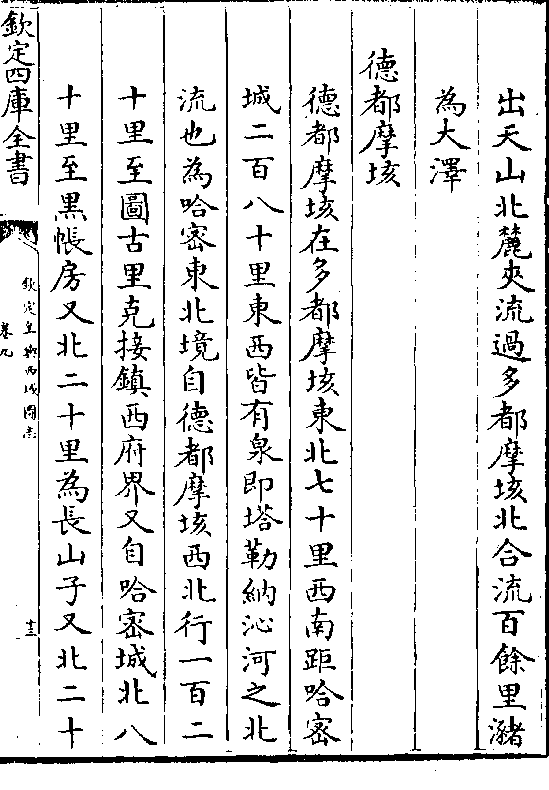 出天山北麓夾流過多都摩垓北合流百餘里瀦
為大澤
德都摩垓
德都摩垓在多都摩垓東北七十里西南距哈密
城二百八十里東西皆有泉即塔勒納沁河之北
流也為哈密東北境自德都摩垓西北行一百二
十里至圖古里克接鎮西府界又自哈密城北八
十里至黑帳房又北二十里為長山子又北二十
欽定四庫全書
欽定皇輿西域圖志
卷九
十三